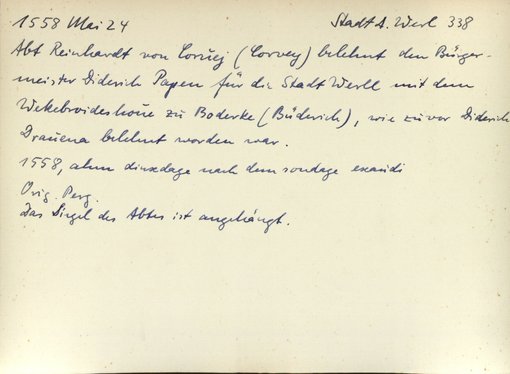 1558 Mai 24 Stadt A. Werl 338
Abt Reinhardt von Corvej (Corvey) belehnt den Bürger-
meister Diderich Papen für die Stadt Werll mit dem
zu Boderke (Büderich), wie zuvor Diderich
belehnt worden war.
1558, ahm dinxdage nach dem sondage exaudi
Orig. Perg.
Das Siegel des Abtes ist angehängt.